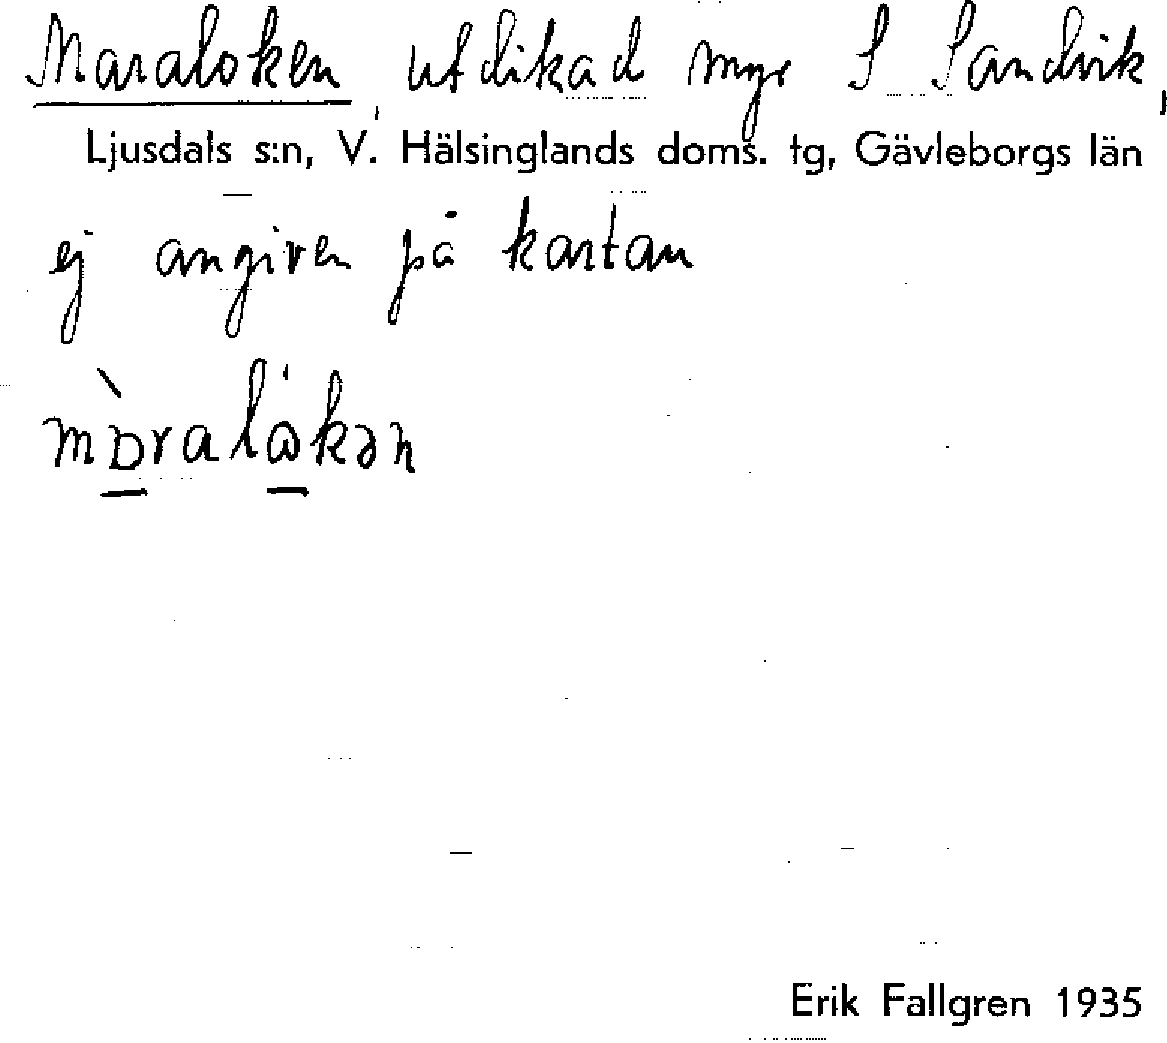 Maraloken, utdikad myr S Sandvik,
Ljusdals s:n, V. Hälsinglands doms. tg, Gävleborgs län
ej angiven på kartan
Erik Fallgren 1935